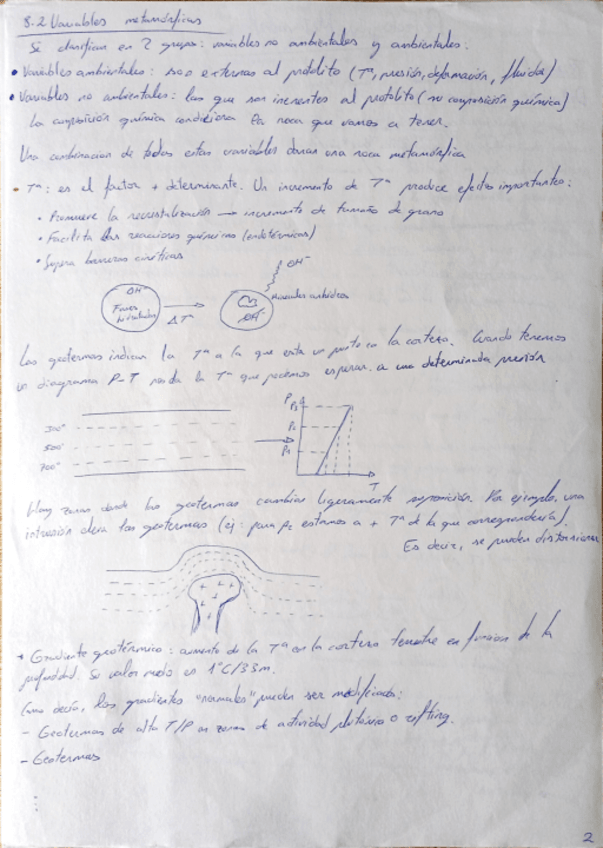 8.2 Variables metamórficas
Se clasifican en 2 grupos: variables no ambientales y ambientales.
• Variables ambientales: son externas al protolito (Tª, presión, deformación, fluidos)
• Variables no ambientales: las que son inerentes al protolito (no composición química)
La composición química condiciona la roca que vamos a tener.
Una combinación de todas estas variables daran una roca metamórfica
• Tª: es el factor + determinante. Un incremento de Tª produce efectos importantes:
• Promueve la recristalización → incremento de tamaño de grano
• Facilita las reacciones químicas (endotérmicas)
• Supera barreras cinéticas
OH⁻
OH⁻
Fases hidratadas
ΔTª
Minerales anhidros
OH⁻
Las geotermas indican la Tª a la que esta un punto en la corteza. Cuando tenemos
un diagrama P-T nos da la Tª que podemos esperar a una determinada presión
P
P3
P2
P1
T
300°
500°
700°
Hay zonas donde las geotermas cambian ligeramente su posición. Por ejemplo, una
intrusión eleva las geotermas (ej: para P2 estamos a + Tª de la que correspondería).
Es decir, se pueden distorsionar
* Gradiente geotérmico: aumento de la Tª en la corteza terrestre en función de la
profundidad. Su valor medio es 1°C/33m.
Como decía, los gradientes "normales" pueden ser modificados:
- Geotermas de alta T/P en zonas de actividad plutónica o rifting.
- Geotermas
2